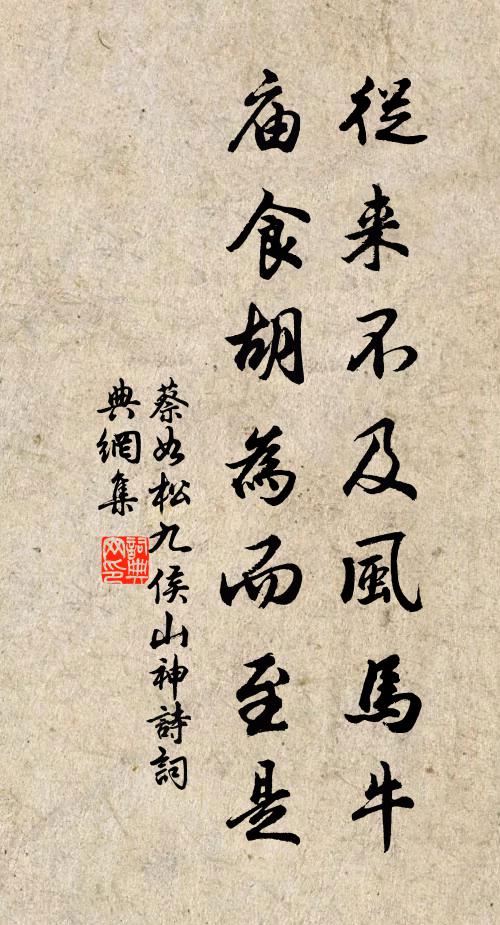 從来不及風馬牛
庙食胡為而至是
蔡如松九侯山神詩詞
典網集
詞典
网印